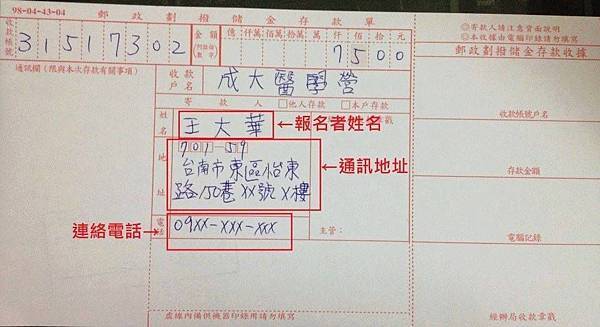 98-04-43-04
郵政劃撥儲金存款單
收款帳號 31517302 金額(阿拉伯數字) 億 仟萬 佰萬 拾萬 萬 仟 佰 拾 元
7500
◎寄款人請注意背面說明
◎本收據由電腦印錄請勿填寫
郵政劃撥儲金存款收據
通訊欄(限與本次存款有關事項)
收款戶名 成大醫學營
寄款人 □他人存款 □本戶存款
收款帳號戶名
姓名 王大華 ←報名者姓名
地址 701-59
台南市東區怡東
路150巷XX號X樓
←通訊地址
存款金額
連絡電話→
電話 09XX-XXX-XXX
主管:
電腦記錄
虛線內備供機器印錄用請勿填寫
經辦局收款章戳